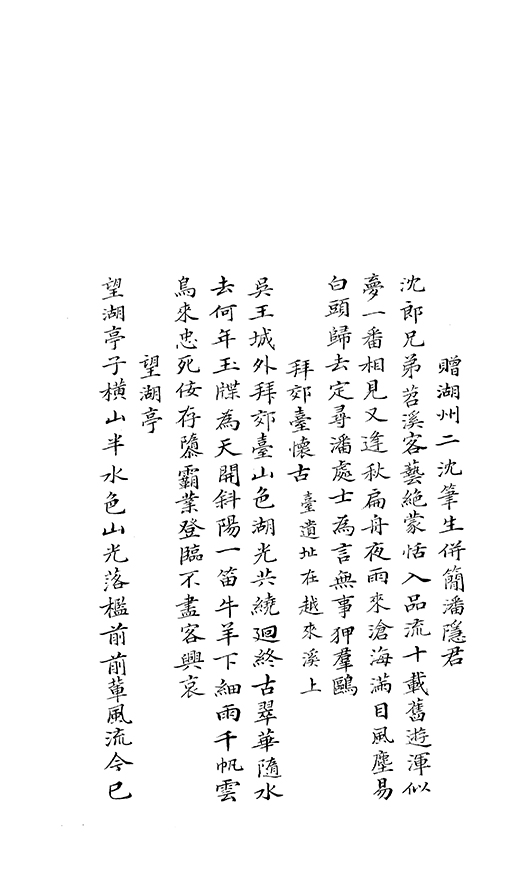 贈湖州二沈筆生併簡潘隱君
沈郎兄弟苕溪客藝絶蒙恬入品流十載舊遊渾似
夢一番相見又逢秋扁舟夜雨來滄海滿目風塵易
白頭歸去定尋潘處士為言無事狎羣鷗
拜郊臺懷古臺遺址在越來溪上
吳王城外拜郊臺山色湖光共繞迴終古翠華隨水
去何年玉牒為天開斜陽一笛牛羊下細雨千帆雲
鳥來忠死佞存隳霸業登臨不盡客興哀
望湖亭
望湖亭子橫山半水色山光落檻前前輩風流今已